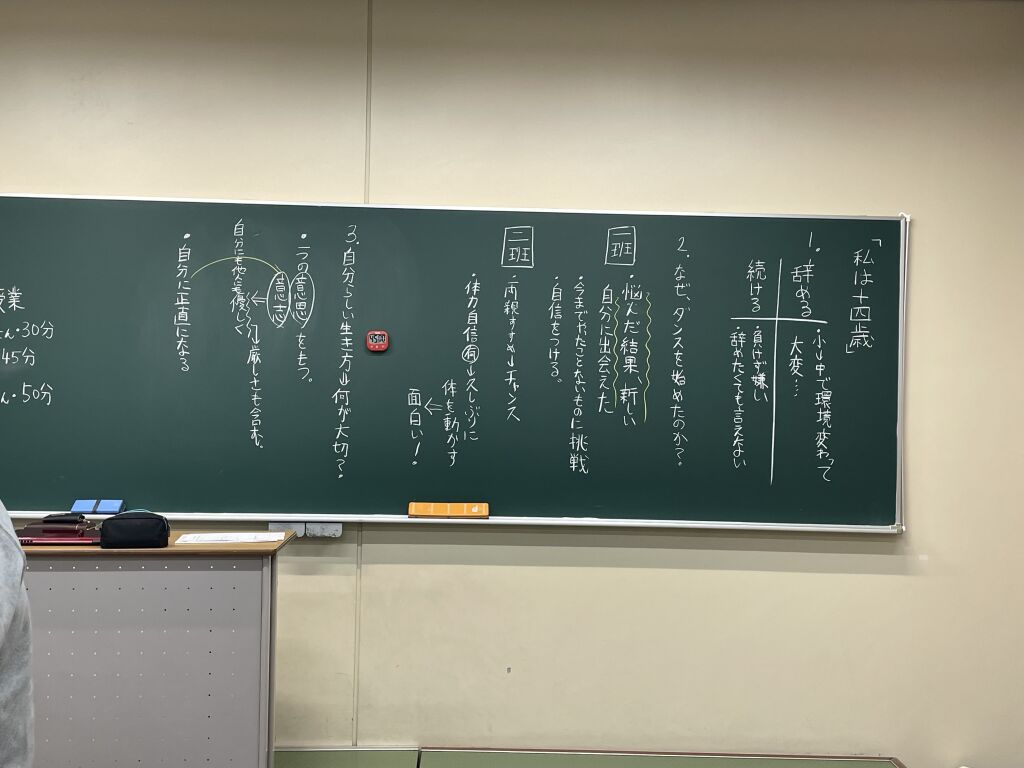 「私は十四歳」
1. 辞める
・小→中で環境変わって
大変…
続ける
・負けず嫌い
・辞めたくても言えない
2. なぜ、ダンスを始めたのか?
一班
・悩んだ結果、新しい
自分に出会えた
・今までやれたことないものに挑戦
・自信をつける。
二班
・両親すすめ→チャンス
・体力自信有→久しぶりに
体を動かす
⇒面白い!
3. 自分らしい生き方→何が大切?
・一つの意思をもつ。
意志
⇒優しく
厳しさも含む。
・自分に正直になる
授業
30分
45分
50分
45:00